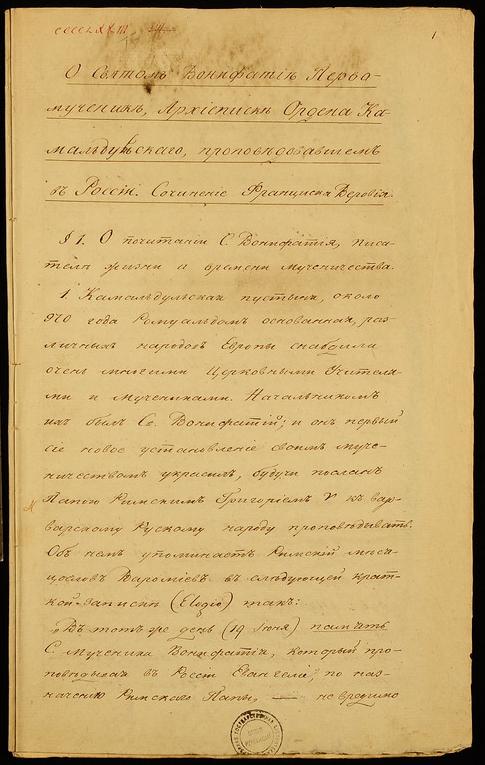 1
О Святомъ Вонифатіѣ Перво-
мученикѣ, Архіепископѣ Ордена Ка-
мальдульскаго, проповѣдовавшемъ
въ Россіи. Сочиненіе Франциска Веровія.
§ 1. О почитаніи С. Вонифатія, писа-
теляхъ жизни и времени мученичества.
1. Камальдульская пустынь, около
970 года Ромуальдомъ основанная, раз-
личныхъ народовъ Европы снабдила
очень многими Церковными Учителя-
ми и Мучениками. Начальникомъ
ихъ былъ Св. Вонифатій; и онъ первый
сіе новое установленіе своимъ муче-
ничествомъ украсилъ, будучи посланъ
Папою Римскимъ Григоріемъ V къ вар-
варскому Рускому народу проповѣдывать.
Объ чемъ упоминаетъ Римскій мѣся-
цословъ Бароніевъ въ слѣдующей крат-
кой записки (Elogio) такъ:
„Въ тотъ же день (19 Іюня) память
С. Мученика Вонифатія, который про-
повѣдывалъ въ Россіи Евангеліе, по наз-
наченію Римскаго Папы, — невредимо